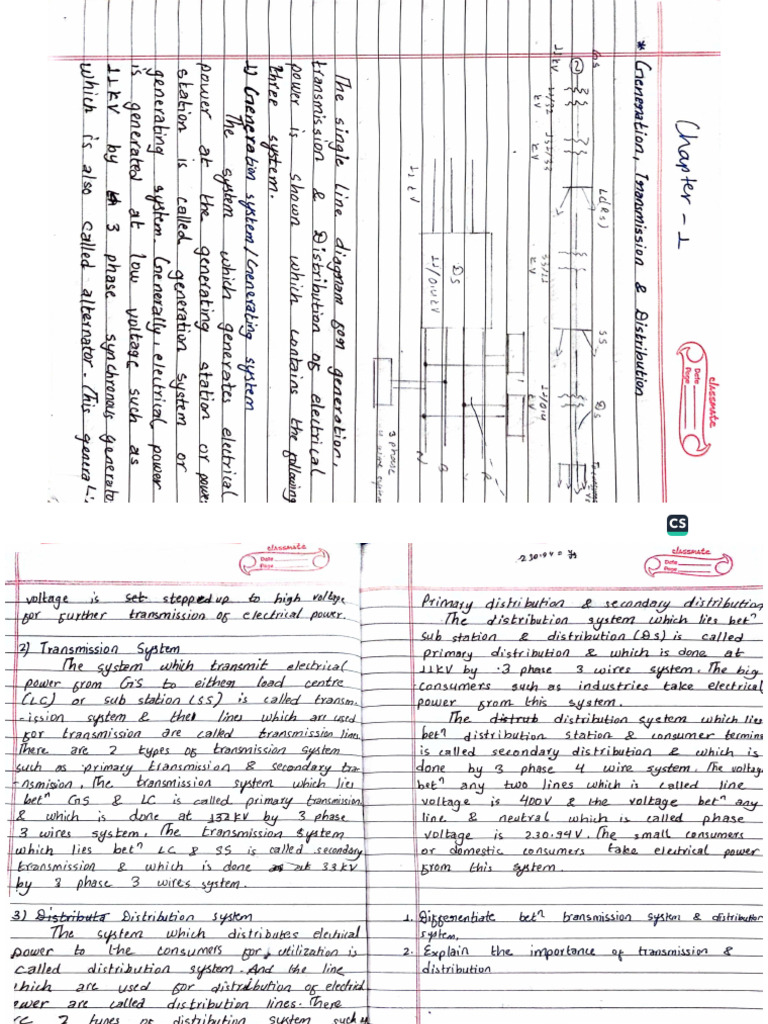 Chapter - 1
classmate
Date
Page
* Generation, Transmission & Distribution
GS
LC(RS)
SS
DS
11KV
11/132
KV
132/33
KV
33/11
KV
11/0.4
KV
11 KV
DS
11/0.4 KV
R
B
N
3 phase
The single line diagram for generation,
transmission & Distribution of electrical
power is shown which contains the following
three system.
1) Generation system/Generating system
The system which generates electrical
power at the generating station or power
station is called generation system or
generating system. Generally, electrical power
is generated at low voltage such as
11KV by 3 phase synchronous generato
which is also called alternator. (This genera
CS
classmate
Date
Page
voltage is set stepped up to high voltage
for further transmission of electrical power.
2) Transmission System
The system which transmit electrical
power from GS to either load centre
(LC) or sub station (SS) is called transm-
-ission system & the lines which are used
for transmission are called transmission lines.
There are 2 types of transmission system
such as primary transmission & secondary tra-
-nsmision. The transmission system which lies
betⁿ GS & LC is called primary transmission
& which is done at 132KV by 3 phase
3 wires system. The transmission system
which lies betⁿ LC & SS is called secondary
transmission & which is done at 33KV
by 3 phase 3 wires system.
3) Distributa Distribution system
The system which distributes electrical
power to the consumers for utilization is
called distribution system. And the line
which are used for distribution of electrid
ower are called distribution lines. There
re 2 types of distribution system such
230.94 =
classmate
Date
Page
Primary distribution & secondary distribution
The distribution system which lies betⁿ
sub station & distribution (Ds) is called
primary distribution & which is done at
11KV by 3 phase 3 wires system. The big
consumers such as industries take electrical
power from this system.
The distrub distribution system which lies
betⁿ distribution station & consumer termina
is called secondary distribution & which is
done by 3 phase 4 wire system. The voltag
betⁿ any two lines which is called line
voltage is 400V & the voltage betⁿ any
line & neutral which is called phase
voltage is 230.94V. The small consumers
or domestic consumers take electrical power
from this system.
1. Differentiate betⁿ transmission system & distribution
system.
2. Explain the importance of transmission &
distribution